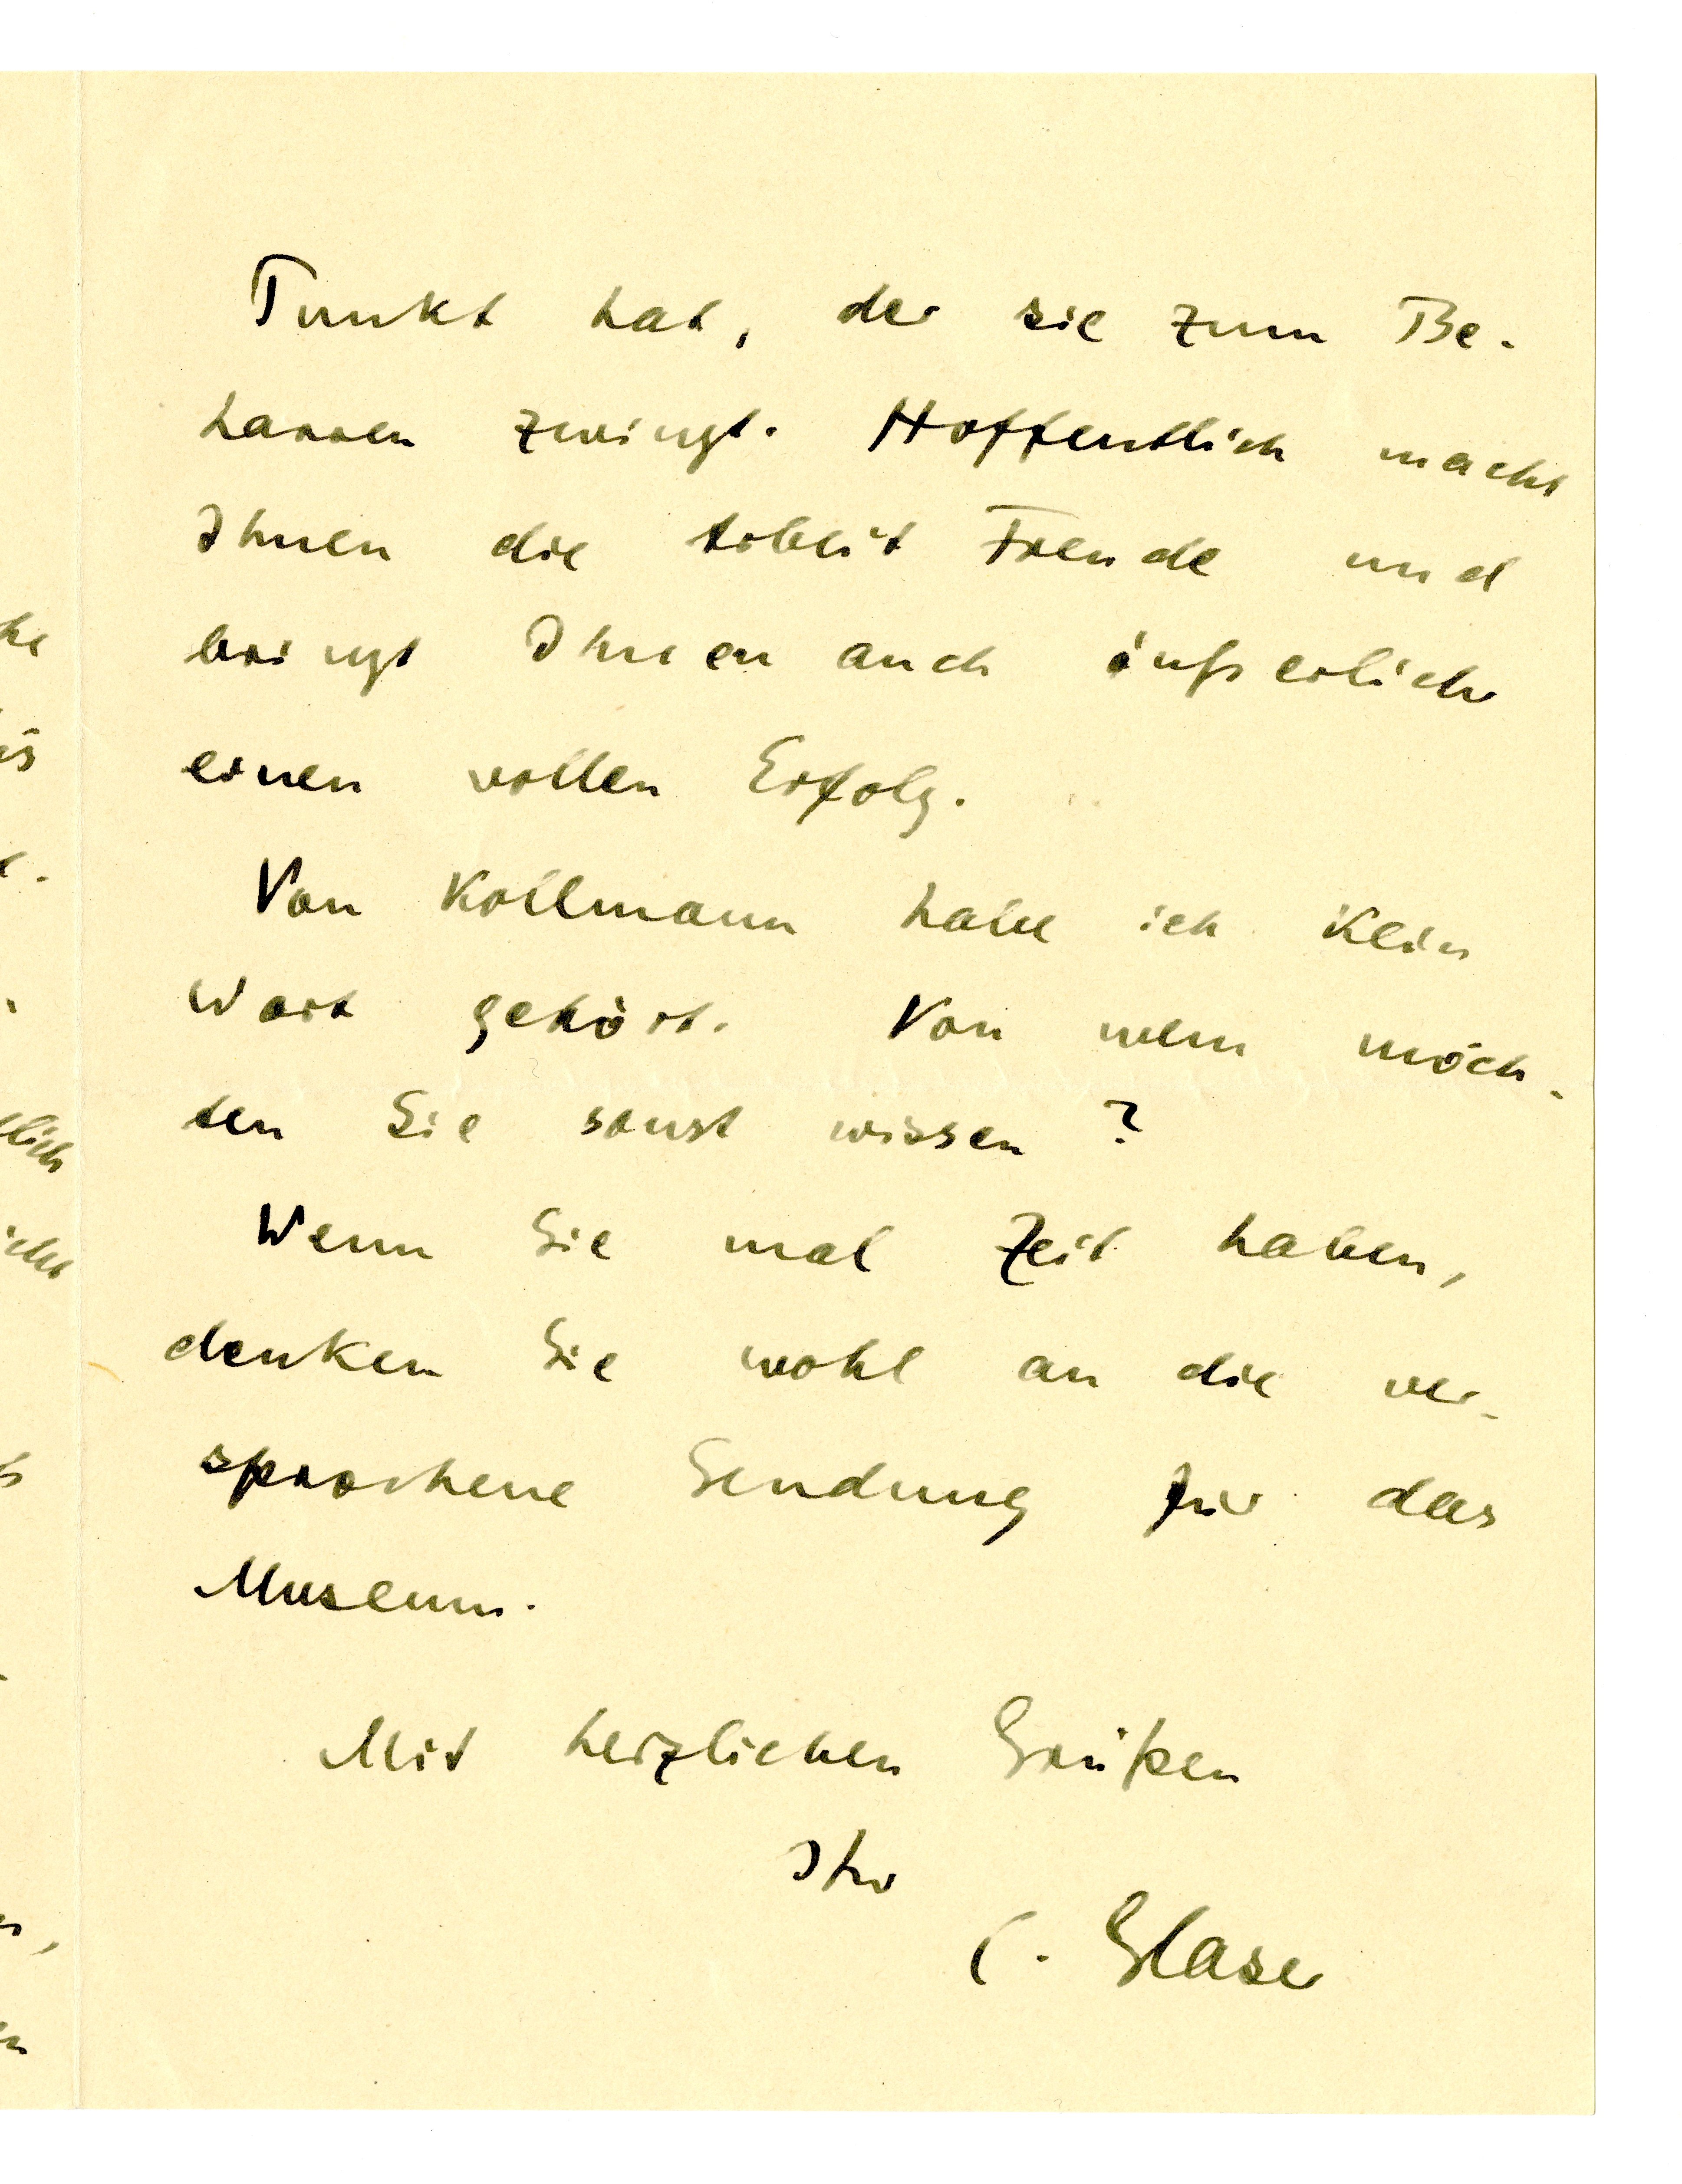 Punkt hat, der sie zum Be-
harren zwingt. Hoffentlich macht
Ihnen die Arbeit Freude und
bringt Ihnen auch äußerlich
einen vollen Erfolg.
Von Kollmann habe ich kein
Wort gehört. Von wem möch-
ten Sie sonst wissen?
Wenn Sie mal Zeit haben,
denken Sie wohl an die ver-
sprochene Sendung für das
Museum.
Mit herzlichen Grüßen
Ihr
C. Glaser